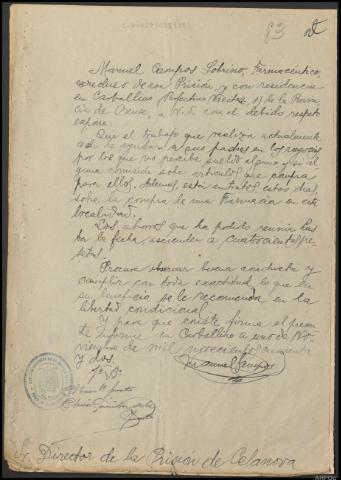 83
Manuel Campos Sobrino, Farmacéutico,
exrecluso de esa Prisión y con residencia
en Carballino (Perfectino Viéitez, 8) de la Provin
cia de Orense, a V.S. con el debido respeto
expone:
Que el trabajo que realiza actualmen
te es de ayudar a sus padres en los negocios
por los que no percibe sueldo alguno y si al
guna comisión sobre artículos que compra
para ellos. Además, está en tratos estos días,
sobre la compra de una Farmacia en esta
localidad.
Los ahorros que ha podido reunir has
ta la fecha ascienden a cuatrocientas pe
setas.
Procura observar buena conducta y
cumplir con toda exactitud lo que en
su beneficio se le recomienda en la
libertad condicional.
Y para que conste firma el presen
te informe en Carballino a uno de No
viembre de mil novecientos cuarenta
y dos.
Vº Bº
Manuel Campos
Sr. Director de la Prisión de Celanova
AHPOu